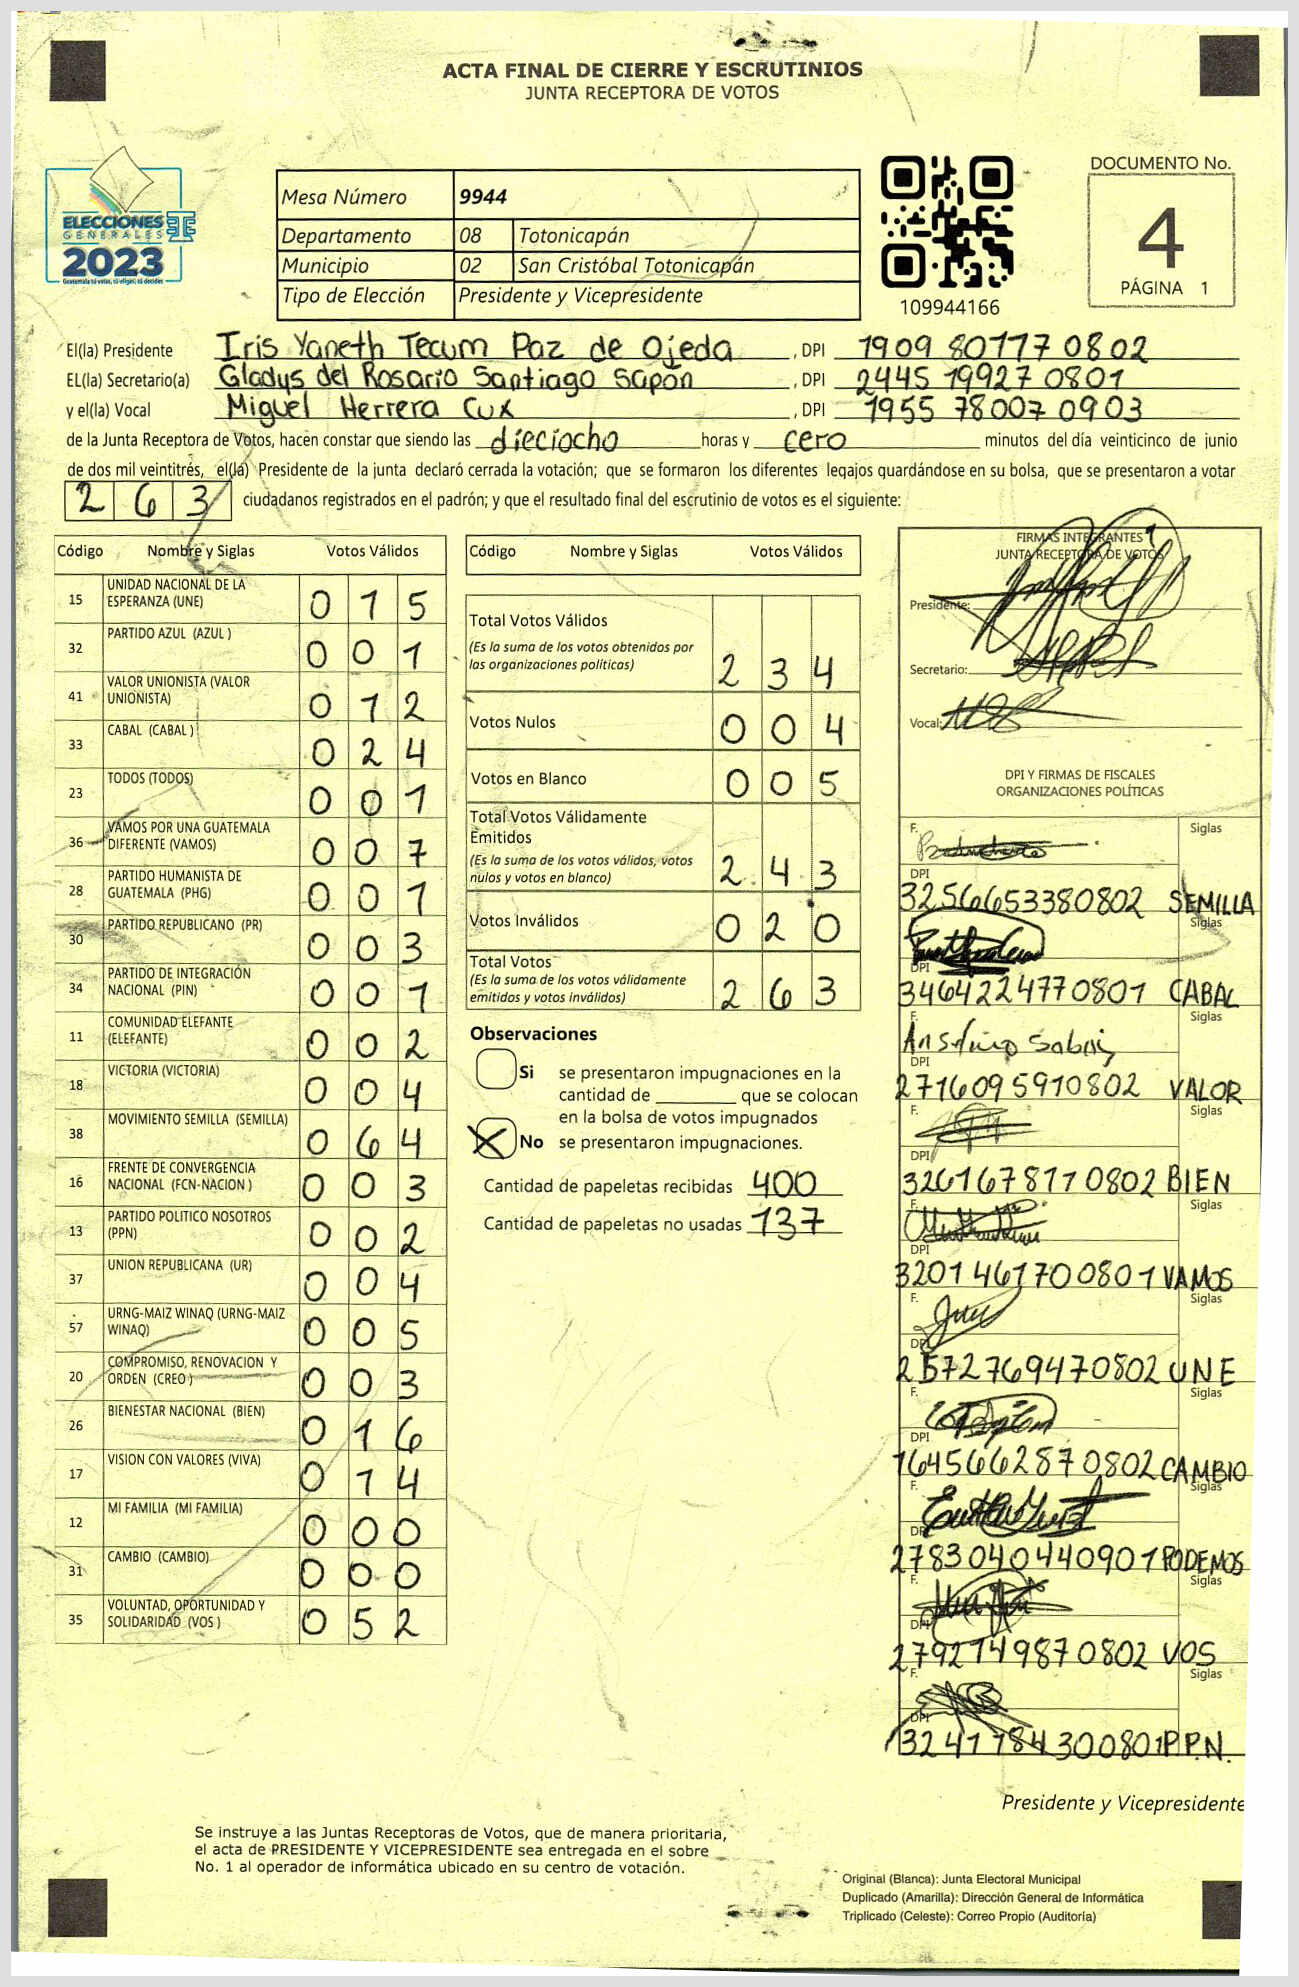 ACTA FINAL DE CIERRE Y ESCRUTINIOS
JUNTA RECEPTORA DE VOTOS
ELECCIONES
GENERALES
2023
Guatemala tú votas, tú eliges, tú decides
Mesa Número 9944
Departamento 08 Totonicapán
Municipio 02 San Cristóbal Totonicapán
Tipo de Elección Presidente y Vicepresidente
109944166
DOCUMENTO No.
4
PÁGINA 1
El(la) Presidente Iris Yaneth Tecum Paz de Ojeda, DPI 1909 80117 0802
EL(la) Secretario(a) Gladys del Rosario Santiago Sapón, DPI 2445 19927 0801
y el(la) Vocal Miguel Herrera Cux, DPI 1955 78007 0903
de la Junta Receptora de Votos, hacen constar que siendo las dieciocho horas y cero minutos del día veinticinco de junio
de dos mil veintitrés, el(la) Presidente de la junta declaró cerrada la votación; que se formaron los diferentes legajos guardándose en su bolsa, que se presentaron a votar
263 ciudadanos registrados en el padrón; y que el resultado final del escrutinio de votos es el siguiente:
Código Nombre y Siglas Votos Válidos
15 UNIDAD NACIONAL DE LA ESPERANZA (UNE) 015
32 PARTIDO AZUL (AZUL ) 001
41 VALOR UNIONISTA (VALOR UNIONISTA) 012
33 CABAL (CABAL ) 024
23 TODOS (TODOS) 001
36 VAMOS POR UNA GUATEMALA DIFERENTE (VAMOS) 007
28 PARTIDO HUMANISTA DE GUATEMALA (PHG) 001
30 PARTIDO REPUBLICANO (PR) 003
34 PARTIDO DE INTEGRACIÓN NACIONAL (PIN) 001
11 COMUNIDAD ELEFANTE (ELEFANTE) 002
18 VICTORIA (VICTORIA) 004
38 MOVIMIENTO SEMILLA (SEMILLA) 064
16 FRENTE DE CONVERGENCIA NACIONAL (FCN-NACION ) 003
13 PARTIDO POLITICO NOSOTROS (PPN) 002
37 UNION REPUBLICANA (UR) 004
57 URNG-MAIZ WINAQ (URNG-MAIZ WINAQ) 005
20 COMPROMISO, RENOVACION Y ORDEN (CREO ) 003
26 BIENESTAR NACIONAL (BIEN) 016
17 VISION CON VALORES (VIVA) 014
12 MI FAMILIA (MI FAMILIA) 000
31 CAMBIO (CAMBIO) 000
35 VOLUNTAD, OPORTUNIDAD Y SOLIDARIDAD (VOS ) 052
Código Nombre y Siglas Votos Válidos
Total Votos Válidos
(Es la suma de los votos obtenidos por
las organizaciones políticas) 234
Votos Nulos 004
Votos en Blanco 005
Total Votos Válidamente
Emitidos
(Es la suma de los votos válidos, votos
nulos y votos en blanco) 243
Votos Inválidos 020
Total Votos
(Es la suma de los votos válidamente
emitidos y votos inválidos) 263
Observaciones
Si se presentaron impugnaciones en la
cantidad de ________ que se colocan
en la bolsa de votos impugnados
X No se presentaron impugnaciones.
Cantidad de papeletas recibidas 400
Cantidad de papeletas no usadas 137
FIRMAS INTEGRANTES
JUNTA RECEPTORA DE VOTOS
Presidente:
Secretario:
Vocal:
DPI Y FIRMAS DE FISCALES
ORGANIZACIONES POLÍTICAS
F. Siglas
DPI
3256653380802 SEMILLA
Siglas
DPI
3464224770801 CABAL
F. Siglas
DPI
2716095910802 VALOR
F. Siglas
DPI
3261678110802 BIEN
F. Siglas
DPI
3201461700801 VAMOS
F. Siglas
DPI
2572769470802 UNE
F. Siglas
DPI
1645662870802 CAMBIO
F. Siglas
DPI
2783040440901 PODEMOS
F. Siglas
DPI
2792149870802 VOS
F. Siglas
DPI
3241184300801 P.P.N.
Presidente y Vicepresidente
Se instruye a las Juntas Receptoras de Votos, que de manera prioritaria,
el acta de PRESIDENTE Y VICEPRESIDENTE sea entregada en el sobre
No. 1 al operador de informática ubicado en su centro de votación.
Original (Blanca): Junta Electoral Municipal
Duplicado (Amarilla): Dirección General de Informática
Triplicado (Celeste): Correo Propio (Auditoría)